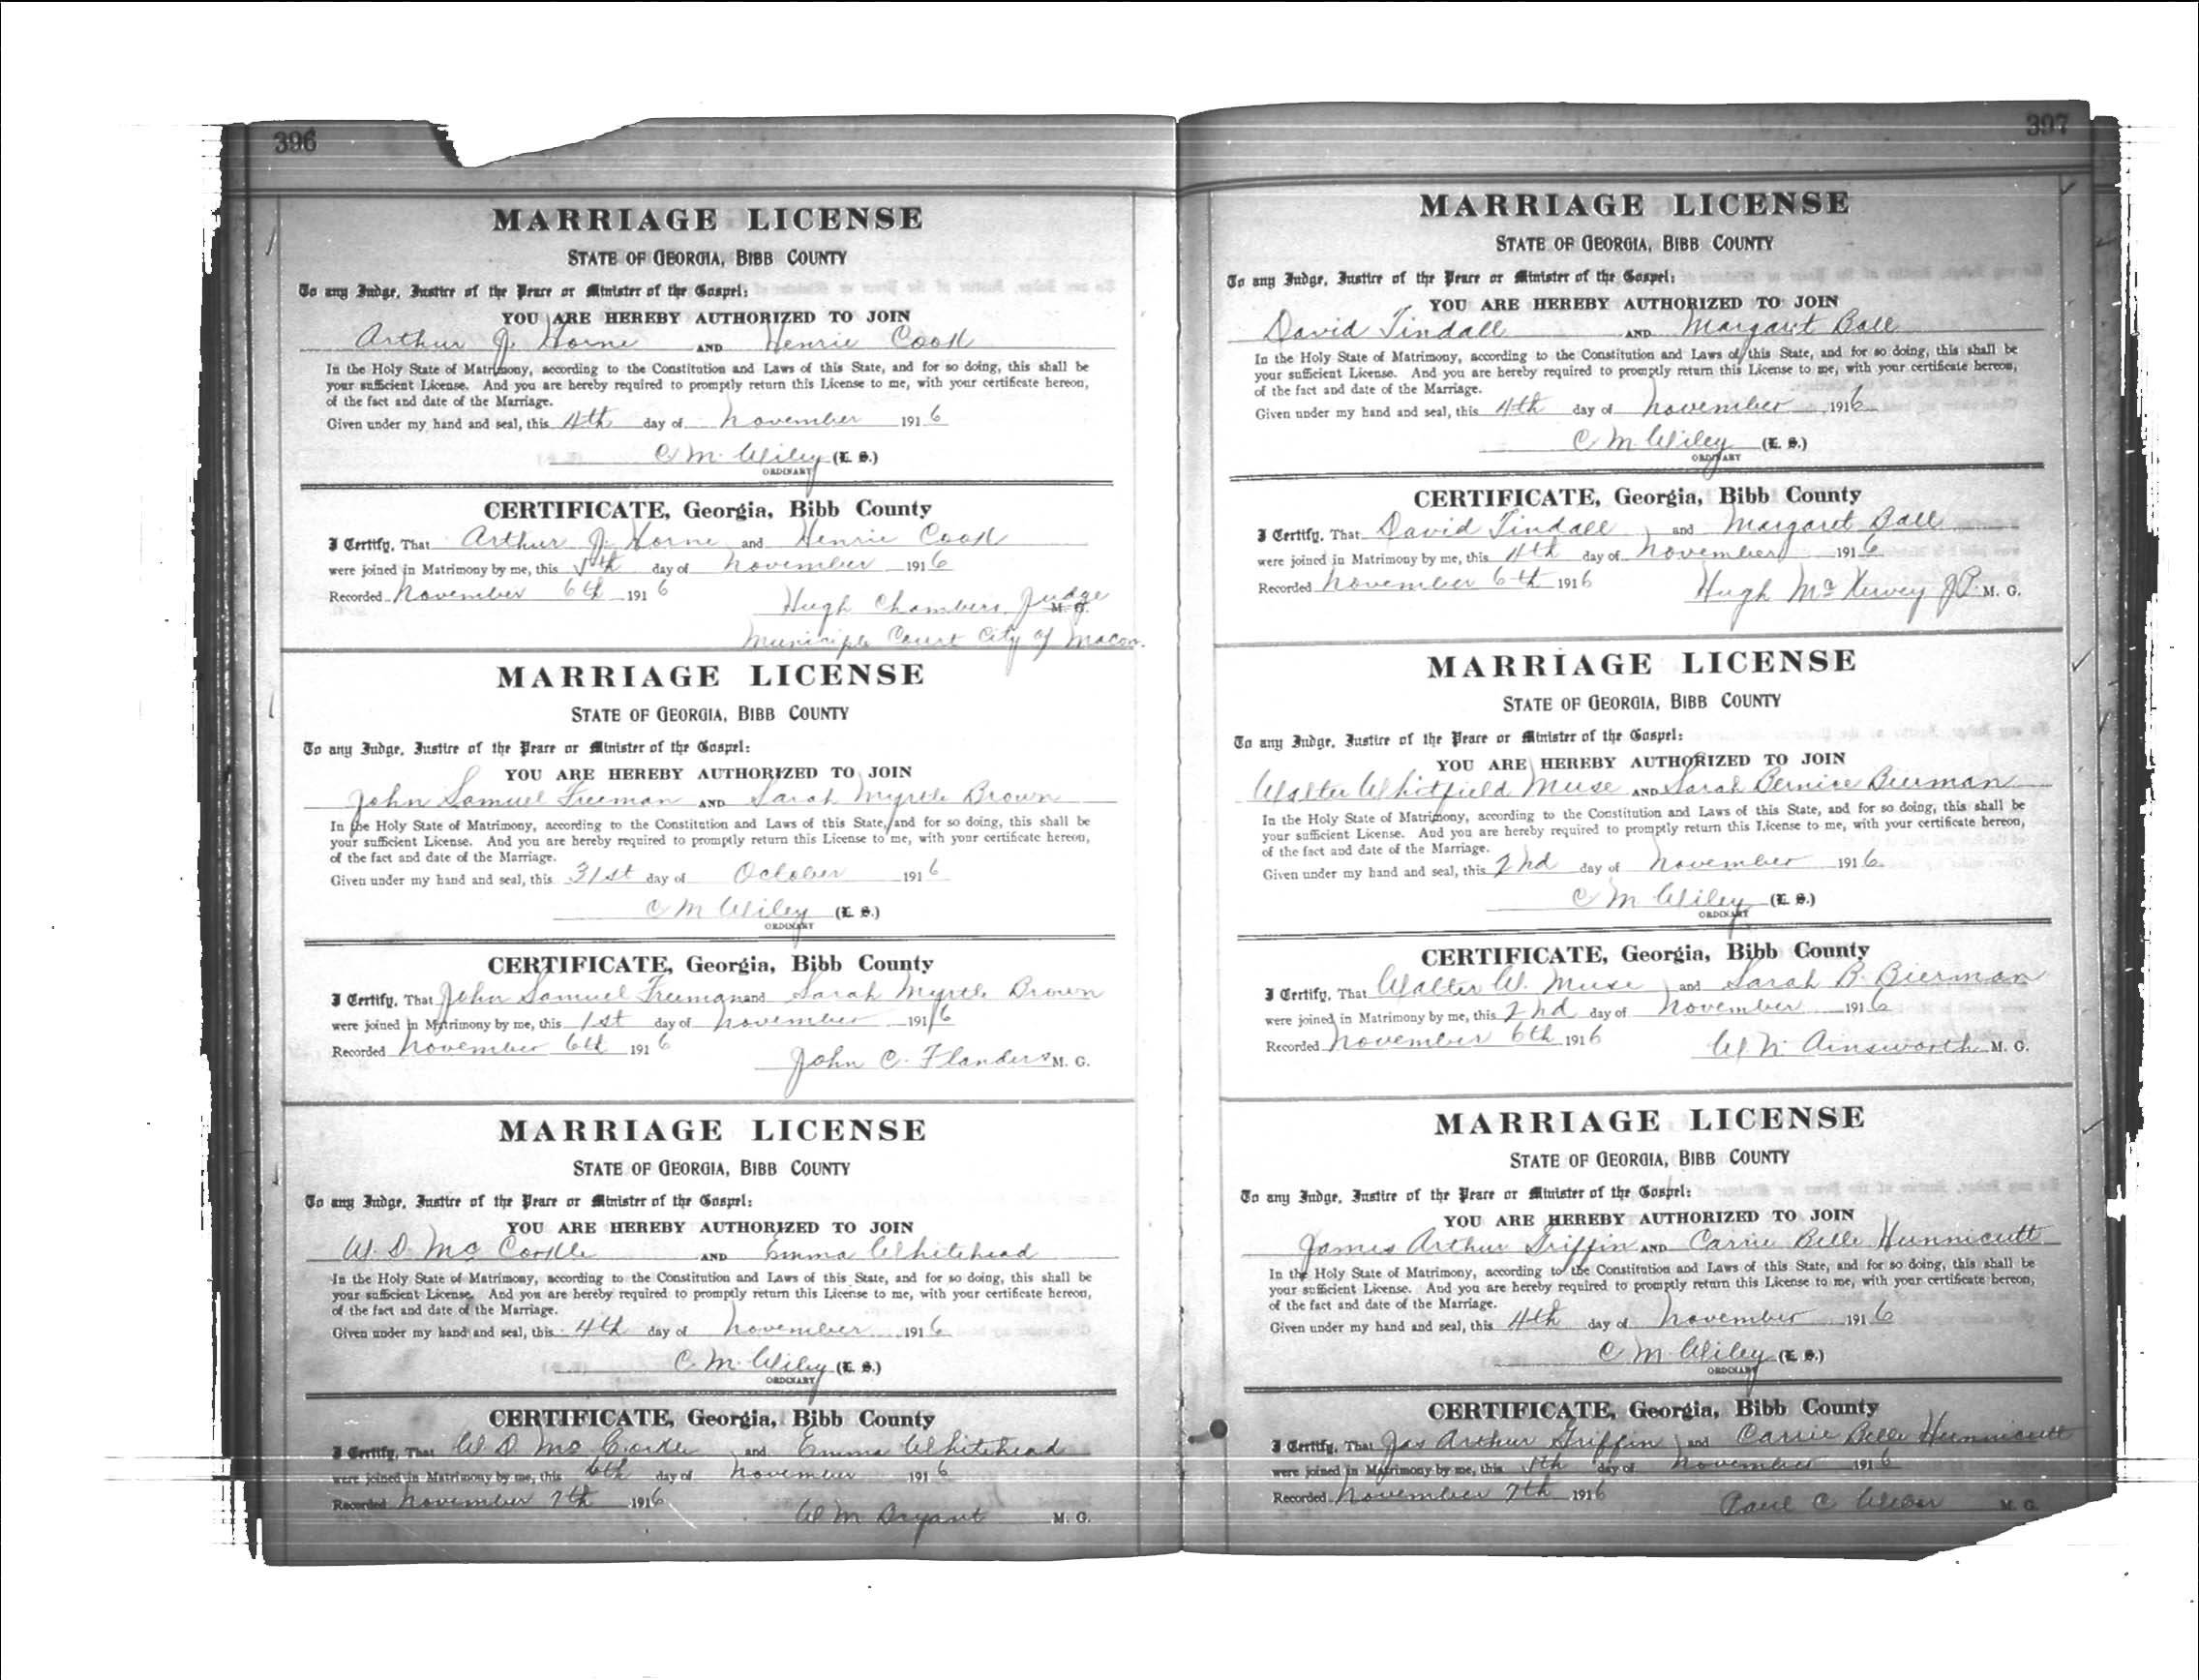 396
MARRIAGE LICENSE
STATE OF GEORGIA, BIBB COUNTY
To any Judge, Justice of the Peace or Minister of the Gospel:
YOU ARE HEREBY AUTHORIZED TO JOIN
Arthur J. Horne AND Henrie Cook
In the Holy State of Matrimony, according to the Constitution and Laws of this State, and for so doing, this shall be
your sufficient License. And you are hereby required to promptly return this License to me, with your certificate hereon,
of the fact and date of the Marriage.
Given under my hand and seal, this 4th day of November 1916
C. M. Wiley (L. S.)
ORDINARY
CERTIFICATE, Georgia, Bibb County
I Certify, That Arthur J. Horne and Henrie Cook
were joined in Matrimony by me, this 5th day of November 1916
Recorded November 6th 1916
Hugh Chambers Judge
M. G.
Municiple Court City of Macon.
MARRIAGE LICENSE
STATE OF GEORGIA, BIBB COUNTY
To any Judge, Justice of the Peace or Minister of the Gospel:
YOU ARE HEREBY AUTHORIZED TO JOIN
John Samuel Freeman AND Sarah Myrtle Brown
In the Holy State of Matrimony, according to the Constitution and Laws of this State, and for so doing, this shall be
your sufficient License. And you are hereby required to promptly return this License to me, with your certificate hereon,
of the fact and date of the Marriage.
Given under my hand and seal, this 31st day of October 1916
C M Wiley (L. S.)
ORDINARY
CERTIFICATE, Georgia, Bibb County
I Certify, That John Samuel Freeman and Sarah Myrtle Brown
were joined in Matrimony by me, this 1st day of November 1916
Recorded November 6th 1916
John C. Flanders M. G.
MARRIAGE LICENSE
STATE OF GEORGIA, BIBB COUNTY
To any Judge, Justice of the Peace or Minister of the Gospel:
YOU ARE HEREBY AUTHORIZED TO JOIN
W. D. McCordle AND Emma Whitehead
In the Holy State of Matrimony, according to the Constitution and Laws of this State, and for so doing, this shall be
your sufficient License. And you are hereby required to promptly return this License to me, with your certificate hereon,
of the fact and date of the Marriage.
Given under my hand and seal, this 4th day of November 1916
C. M. Wiley (L. S.)
ORDINARY
CERTIFICATE, Georgia, Bibb County
I Certify, That W D and Emma Whitehead
were joined in Matrimony by me, this 6th day of November 1916
Recorded November 7th 1916
W M Bryant M. G.
397
MARRIAGE LICENSE
STATE OF GEORGIA, BIBB COUNTY
To any Judge, Justice of the Peace or Minister of the Gospel:
YOU ARE HEREBY AUTHORIZED TO JOIN
David Tindall AND Margaret Ball
In the Holy State of Matrimony, according to the Constitution and Laws of this State, and for so doing, this shall be
your sufficient License. And you are hereby required to promptly return this License to me, with your certificate hereon,
of the fact and date of the Marriage.
Given under my hand and seal, this 4th day of November 1916
C M Wiley (L. S.)
ORDINARY
CERTIFICATE, Georgia, Bibb County
I Certify, That David Tindall and Margaret Ball
were joined in Matrimony by me, this 4th day of November 1916
Recorded November 6th 1916
Hugh J.P. M. G.
MARRIAGE LICENSE
STATE OF GEORGIA, BIBB COUNTY
To any Judge, Justice of the Peace or Minister of the Gospel:
YOU ARE HEREBY AUTHORIZED TO JOIN
Walter Whitfield Muse AND Sarah Bernice Bierman
In the Holy State of Matrimony, according to the Constitution and Laws of this State, and for so doing, this shall be
your sufficient License. And you are hereby required to promptly return this License to me, with your certificate hereon,
of the fact and date of the Marriage.
Given under my hand and seal, this 2nd day of November 1916
C M Wiley (L. S.)
ORDINARY
CERTIFICATE, Georgia, Bibb County
I Certify, That Walter W. Muse and Sarah B. Bierman
were joined in Matrimony by me, this 2nd day of November 1916
Recorded November 6th 1916
W N Ainsworth M. G.
MARRIAGE LICENSE
STATE OF GEORGIA, BIBB COUNTY
To any Judge, Justice of the Peace or Minister of the Gospel:
YOU ARE HEREBY AUTHORIZED TO JOIN
James Arthur Griffin AND Carrie Belle Hunnicutt
In the Holy State of Matrimony, according to the Constitution and Laws of this State, and for so doing, this shall be
your sufficient License. And you are hereby required to promptly return this License to me, with your certificate hereon,
of the fact and date of the Marriage.
Given under my hand and seal, this 4th day of November 1916
C M Wiley (L. S.)
ORDINARY
CERTIFICATE, Georgia, Bibb County
I Certify, That Jas Arthur Griffin and Carrie Belle Hunnicutt
were joined in Matrimony by me, this 5th day of November 1916
Recorded November 7th 1916
Paul C M. G.